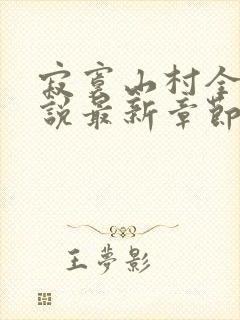 寂寞山村全
說最新章節
王夢影